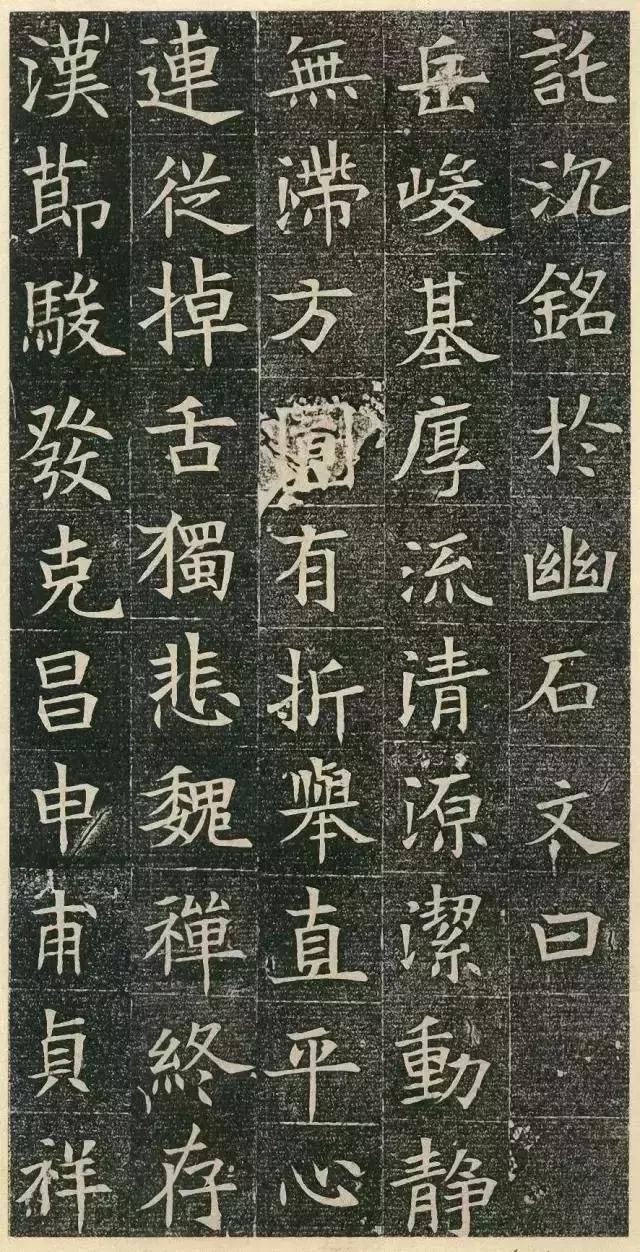 託沉銘於幽石文曰
岳峻基厚流清源潔動静
無滯方有折舉直平心
連從掉舌獨悲魏禪終存
漢莭駿發克昌申甫貞祥